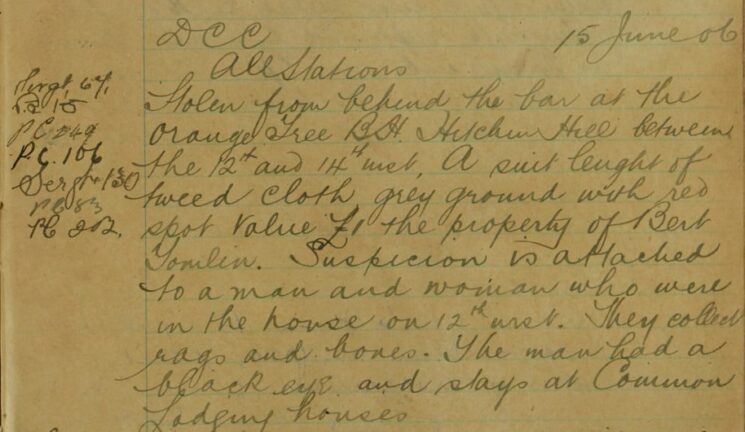 DCC 15 June 06
All Stations
Stolen from behind the bar at the
Orange Tree B.H. Hitchin Hill between
the 12th and 14th inst, A suit lenght of
tweed cloth grey ground with red
spot Value £1 the property of Bert
Tomlin. Suspicion is attached
to a man and woman who were
in the house on 12th inst. They collect
rags and bones. The man had a
black eye and stays at Common
Lodging houses
Sergt, 67,
15
P.C. 249
P.C. 106
Sergt 130
PC 83
PC 202.